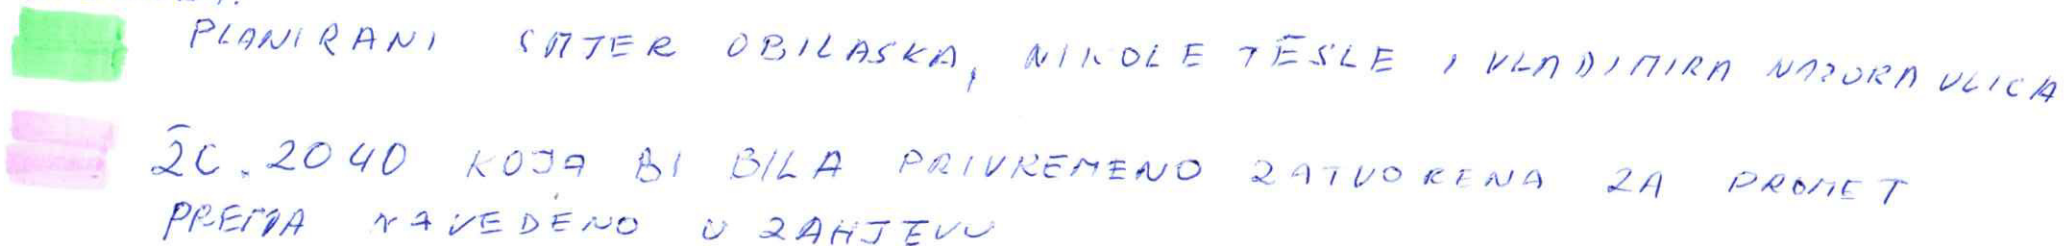 PLANIRANI SMJER OBILASKA, NIKOLE TESLE I VLADIMIRA NAZORA ULICA
ŽC. 2040 KOJA BI BILA PRIVREMENO ZATVORENA ZA PROMET
PREMA NAVEDENO U ZAHJEVU